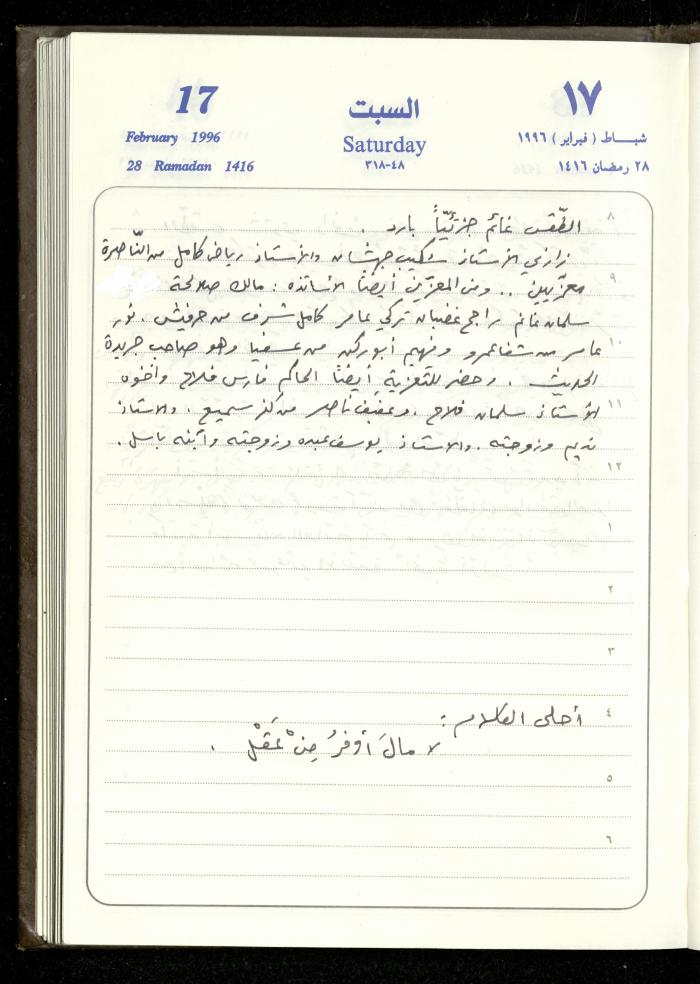 17
February 1996
28 Ramadan 1416
السبت
Saturday
٤٨-٣١٨
١٧
شباط ( فبراير ) ١٩٩٦
٢٨ رمضان ١٤١٦
٨
الطّقس غائم جزئيّاً بارد .
زارني الأستاذ شكيب جهشان والأستاذ رياض كامل من النّاصرة
٩
معزّيين .. ومن المعزّين أيضًا الأساتذة : مالك صلالحة
سلمان غانم راجح غضبان تركي عامر كامل شرف من حرفيش . نور
١٠
عامر من شفاعمرو وفهيم أبو ركن من عسفيا وهو صاحب جريدة
الحديث . وحضر للتعزية أيضًا الحاكم فارس فلاح وأخوه
١١
الأستاذ سلمان فلاح . وعفيف ناصر من كفر سميع . والاستاذ
نديم وزوجته . والاستاذ يوسف عبده وزوجته وابنه باسل .
١٢
١
٢
٣
٤
أحلى الكلام :
لا مالَ أوفرُ مِنْ عَقْل .
٥
٦